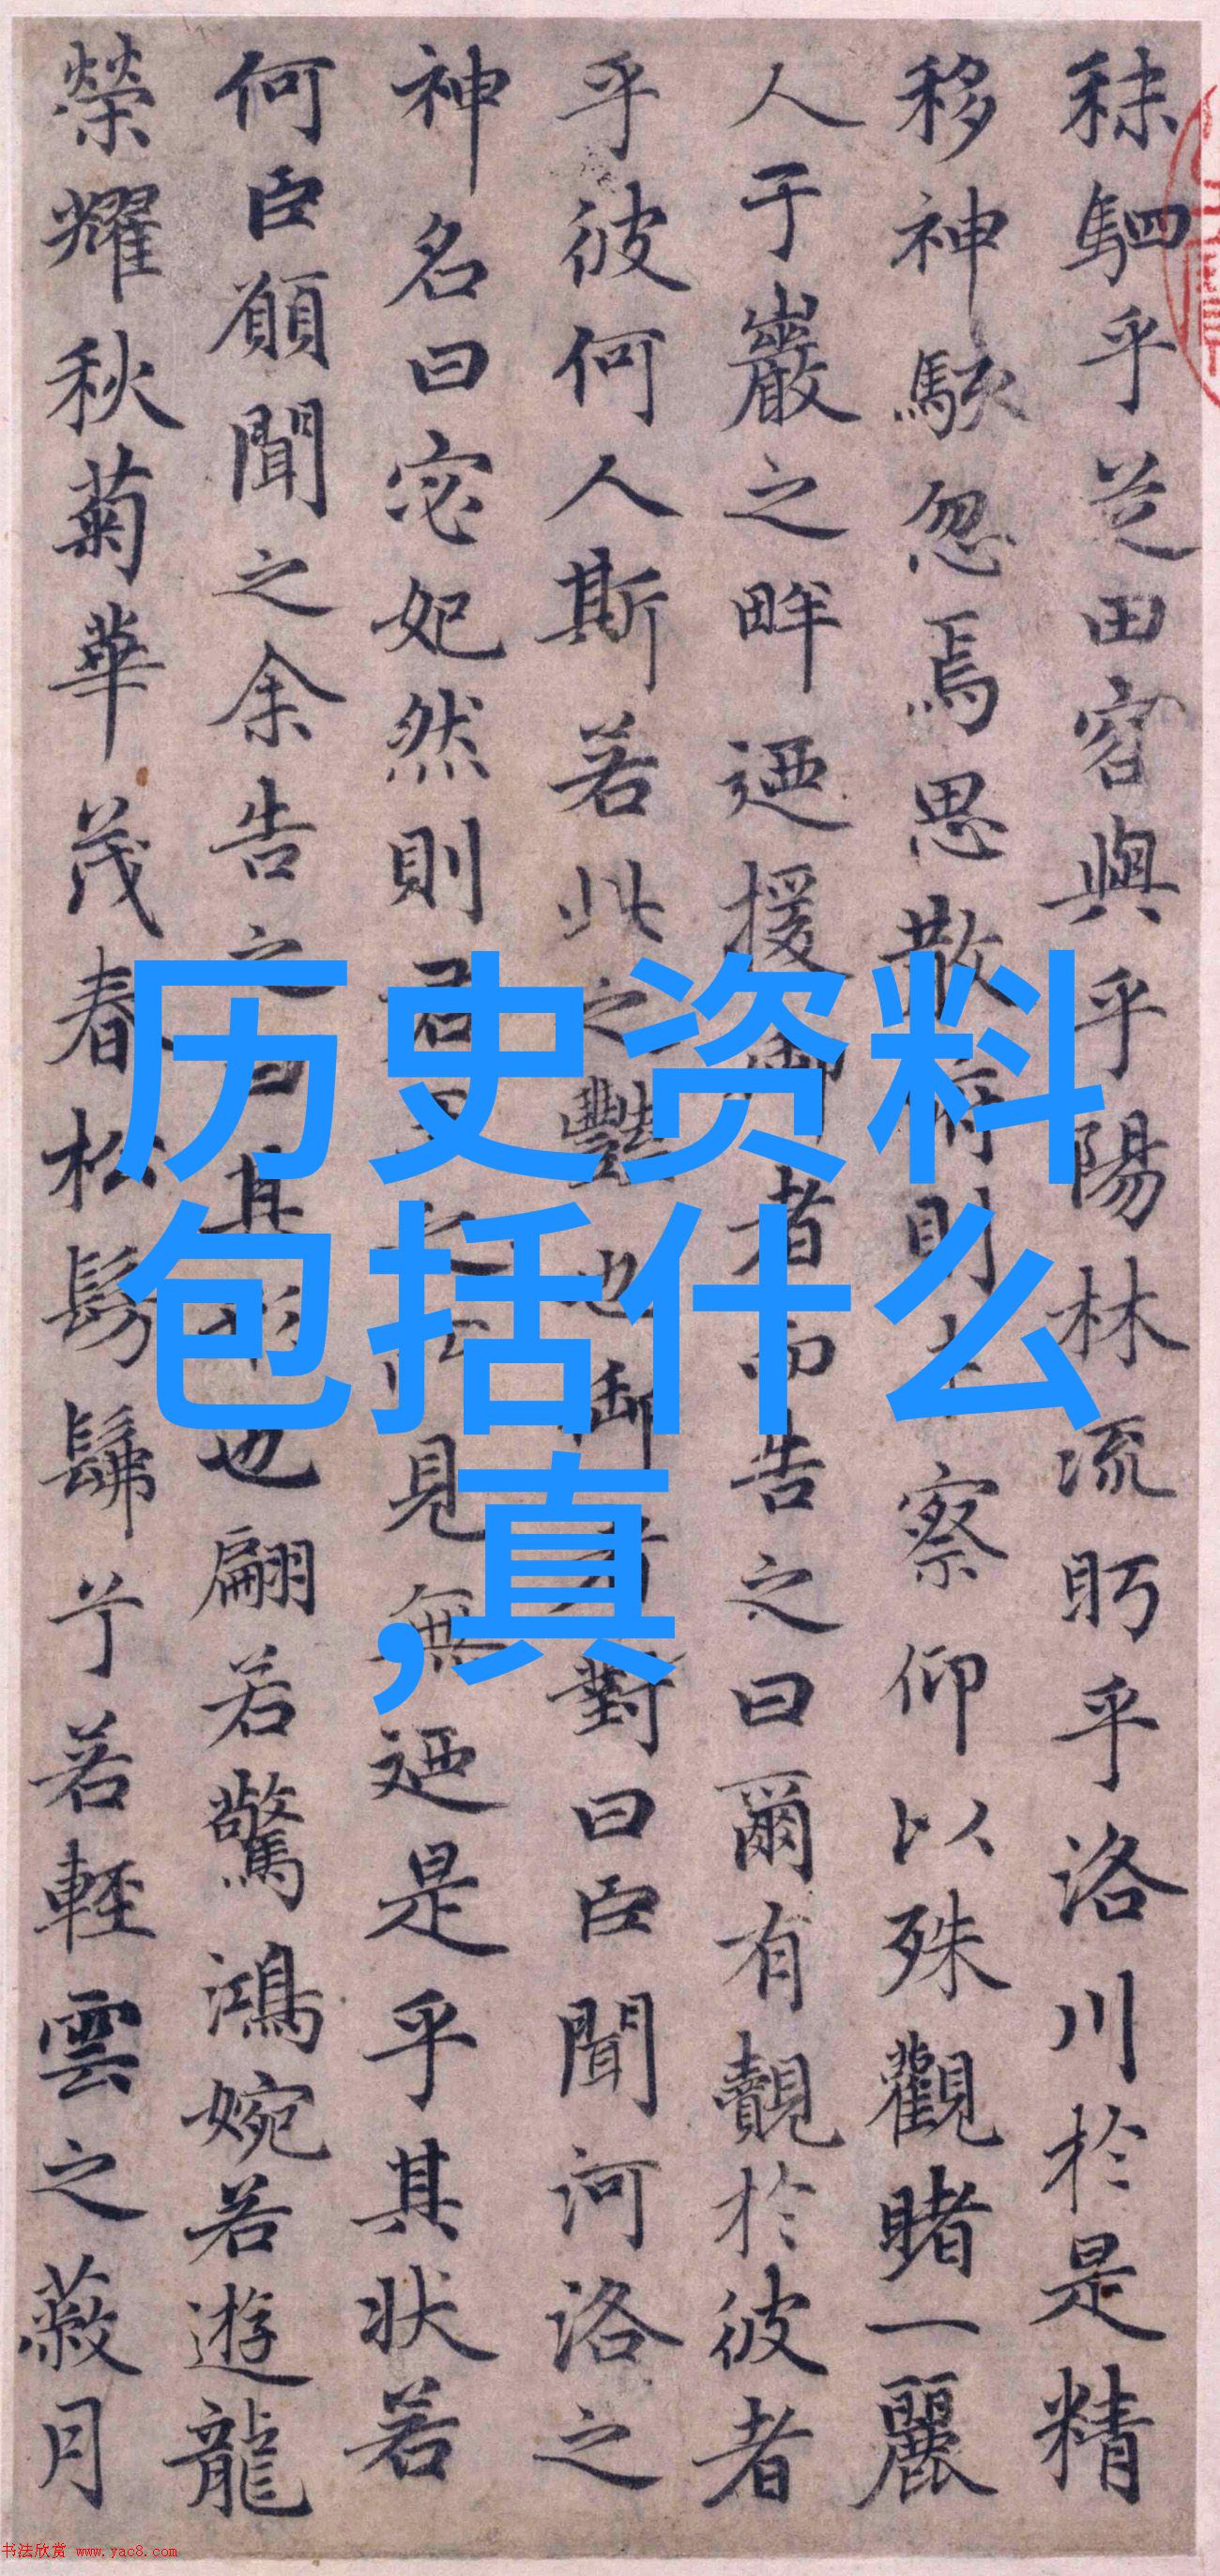 秣駟乎芝田容與乎陽林流眄乎洛川於是精
移神駭忽焉思散俯則未察仰以殊觀睹一麗
人于巖之畔迺援御者而告之曰爾有覿於彼者
乎彼何人斯若此之豔也御者對曰臣聞河洛之
神名曰宓妃然則君王之所見無迺是乎其狀若
何臣願聞之余告之曰其形也翩若驚鴻婉若遊龍
榮耀秋菊華茂春松髣髴兮若輕雲之蔽月
历史资料
包括什么
,真
书法欣赏 www.yac8.com